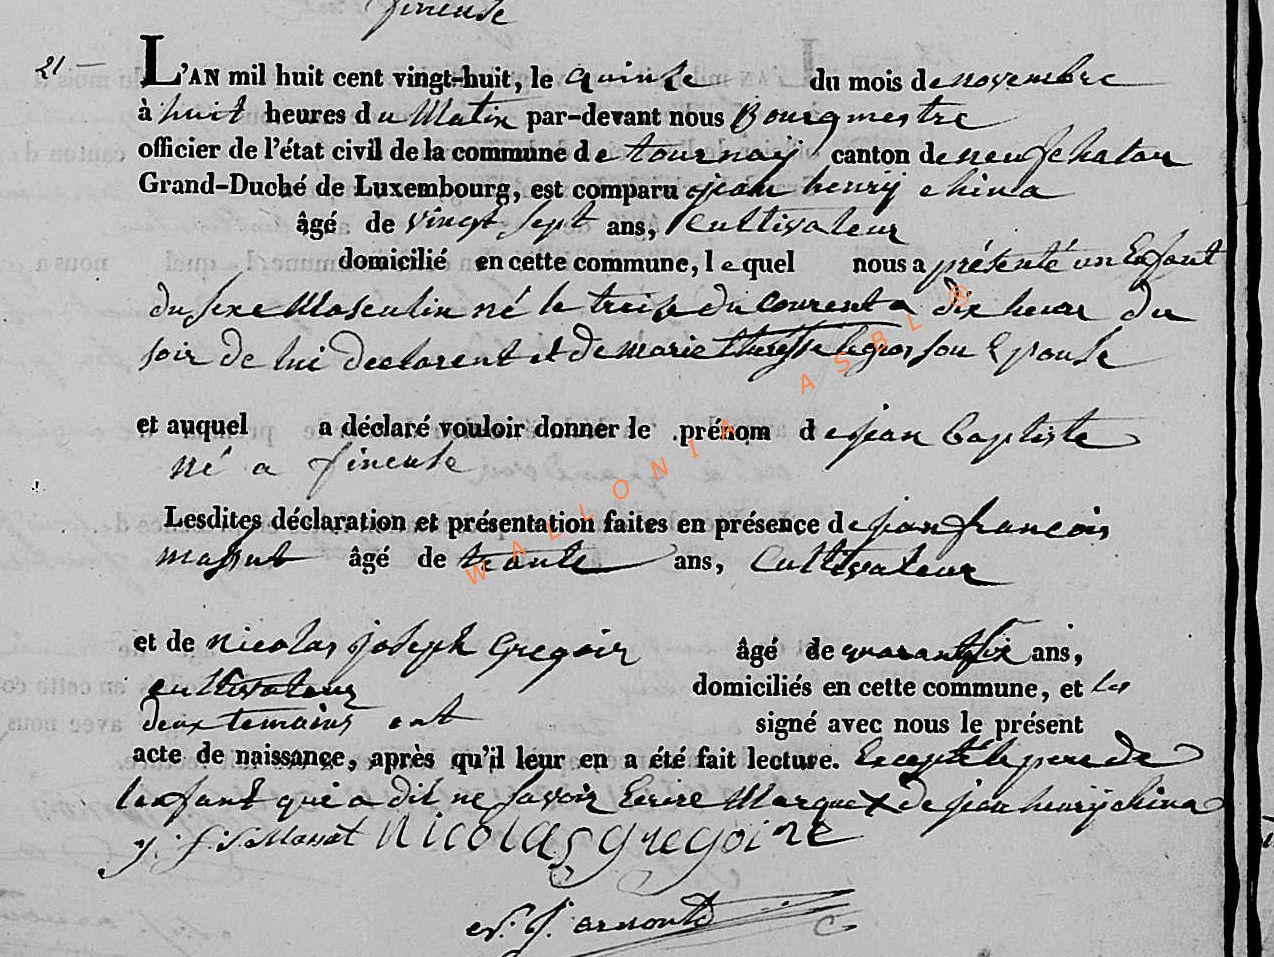 fineuse
21 —
L'AN mil huit cent vingt-huit, le quinse du mois de novembre
à huit heures du Matin par-devant nous Bourgmestre
officier de l'état civil de la commune de tournay canton de neufchatau
Grand-Duché de Luxembourg, est comparu jean henry china
âgé de vingt sept ans, Cultivateur
domicilié en cette commune, lequel nous a présenté un Enfant
du sexe Masculin né le treise du courent a dix heure du
soir de lui declarent et de marie theresse legros son Epouse
et auquel a déclaré vouloir donner le prénom de jean baptiste
né a fineuse
Lesdites déclaration et présentation faites en présence de jean francois
massut âgé de trante ans, Cultivateur
et de nicolas joseph Gregoir âgé de quarantsix ans,
cultivateur domiciliés en cette commune, et les
deux temains ont signé avec nous le présent
acte de naissance, après qu'il leur en a été fait lecture. Excepté le pere de
l'enfant qui a dit ne savoir Ecrire Marque X de jean henry china
j. f. Massut Nicolas gregoire
j. arnould
WALLONIA ASBL ®